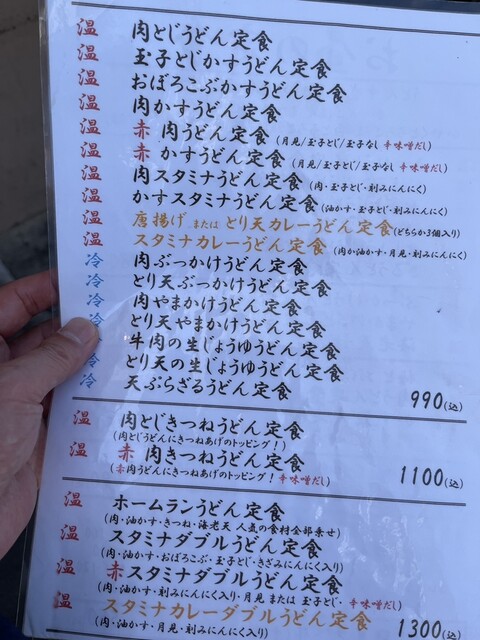 温 肉とじうどん定食
温 玉子とじかすうどん定食
温 おぼろこぶかすうどん定食
温 肉かすうどん定食
温 赤 肉うどん定食 (月見/玉子とじ/玉子なし 辛味噌だし)
温 赤 かすうどん定食 (月見/玉子とじ/玉子なし 辛味噌だし)
温 肉スタミナうどん定食 (肉・玉子とじ・刻みにんにく)
温 かすスタミナうどん定食 (油かす・玉子とじ・刻みにんにく)
温 唐揚げ または とり天カレーうどん定食 (どちらか3個入り)
温 スタミナカレーうどん定食 (肉か油かす・月見・刻みにんにく)
冷 肉ぶっかけうどん定食
冷 とり天ぶっかけうどん定食
冷 肉やまかけうどん定食
冷 とり天やまかけうどん定食
牛肉の生じょうゆうどん定食
冷 とり天の生じょうゆうどん定食
冷 天ぷらざるうどん定食 990(込)
温 肉とじきつねうどん定食
(肉とじうどんにきつねあげのトッピング!)
温 赤 肉きつねうどん定食
(赤肉うどんにきつねあげのトッピング! 辛味噌だし) 1100(込)
温 ホームランうどん定食
(肉・油かす・きつね・海老天 人気の食材全部乗せ)
温 スタミナダブルうどん定食
(肉・油かす・おぼろこぶ・玉子とじ・きざみにんにく)
温 赤スタミナダブルうどん定食
(肉・油かす・刻みにんにく入り・月見 または 玉子とじ・ 辛味噌だし)
温 スタミナカレーダブルうどん定食
(肉・油かす・月見・刻みにんにく入り) 1300(込)